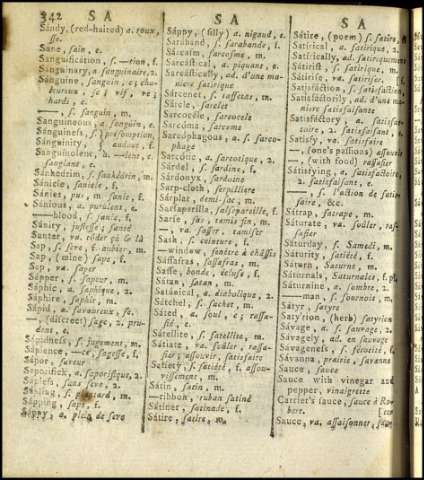 342 S A
S A
S A
Sándy, (red-haired) a. roux,
sse.
Sane, sain, e.
Sanguification, s. —tion, f.
Sánguinary, a sanguinaire, 2.
Sánguine, sanguin, e; cha-
leureux, se; vif, ve;
hardi, e.
—, s. sanguin, m.
Sanguineous, a. sanguin, e.
Sánguineſs, s. présomption
Sanguinity, audace, f.
Sánguinolent, a. —lent, e.
sanglant, e.
Sánhedrim, s. sanhédrin, m.
Sánicle, sanicle, f.
Sánies, pus, m. sanie, f.
Sánious, a. purulent, e.
—blood, s. sanie, f.
Sánity, justesse; santé
Sánter, va. rôder çà & là
Sap, s. seve, f. aubier, m.
Sap, (mine) sape, f.
Sap, va. saper
Sápper, s. sapeur, m.
Sáphic, a. saphique, 2.
Sáphire, saphir, m.
Sápid, a. savoureux, se.
—, (discreet) sage, 2. pru-
dent, e.
Sápidneſs, s. jugement, m.
Sápience, —ce, sagesse, f.
Sápor, saveur
Saporifick, a. saporifique, 2.
Sápleſs, sans seve, 2.
Sápling, s. m.
Sápping, sape, f.
Sáppy, a. plein de seve
Sáppy, (silly) a. nigaud, e.
Saraband, s. sarabande, f.
Sárcasm, sarcasme, m.
Sarcástical, a. piquant, e.
Sarcástically, ad. d'une ma-
niere satirique
Sárcenet, s. taffetas, m.
Sárcle, sarcler
Sarcocéle, sarcocele
Sarcóma, sarcome
Sarcóphagous, a. s. sarco-
phage
Sarcótic, a. sarcotique, 2.
Sárdel, s. sardine, f.
Sárdonyx, sardoine
Sarp-cloth, serpilliere
Sárplar, demi-sac, m.
Sarsaparilla, salsepareille, f.
Sarse, sas; tamis fin, m.
—, va. sasser, tamiser
Sash, s. ceinture, f.
—window, fenêtre à châssis
Sáſſafras, sassafras, m.
Saſſe, bonde, écluse, f.
Sátan, satan, m.
Satánical, a. diabolique, 2.
Sátchel, s. sachet, m.
Sáted, a. soul, e; rassa-
sié, e.
Sátellite, s. satellite, m.
Sátiate, va. soûler, rassa-
sier; assouvir, satisfaire
Satiety, s. satiété, f. assou-
vissement, m.
Sátin, satin, m.
—ribbon, ruban satiné
Satinet, satinade, f.
Sátire, satire, m.
Sátire, (poem) s. satire, f.
Satirical, a. satirique, 2.
Satirically, ad. satiriquement
Sátirist, s. satirique, m.
Sátirise, va. satiriser
Satisfáction, s. satisfaction, f.
Satisfáctorily, ad. d'une ma-
niere satisfaisante
Satisfáctory, a. satisfac-
toire, 2. satisfaisant, e.
Satisfy, va. satisfaire
—, (one's passions) assouvir
—, (with food) rassasier
Sátisfying, a. satisfactoire,
2. satisfaisant, e.
—, s. l'action de satis-
faire, &c.
Sátrap, satrape, m.
Sáturate, va. soûler, ras-
sasier
Sáturday, s. Samedi, m.
Sáturity, satiété, f.
Sáturn, Saturne, m.
Sáturnals, Saturnales, f. pl.
—man, s. sournois, m.
Sátyr, satyre
Satyrion, (herb) satyrion
Sávage, a. s. sauvage, 2.
Sávagely, ad. en sauvage
Sávageneſs, s. férocité, f.
Savánna, prairie, savanne
Sauce, sauce
Sauce with vinegar and
pepper, vinaigrette
Carrier's sauce, sauce à Ro-
bert.
Sauce, va. assaisonner,